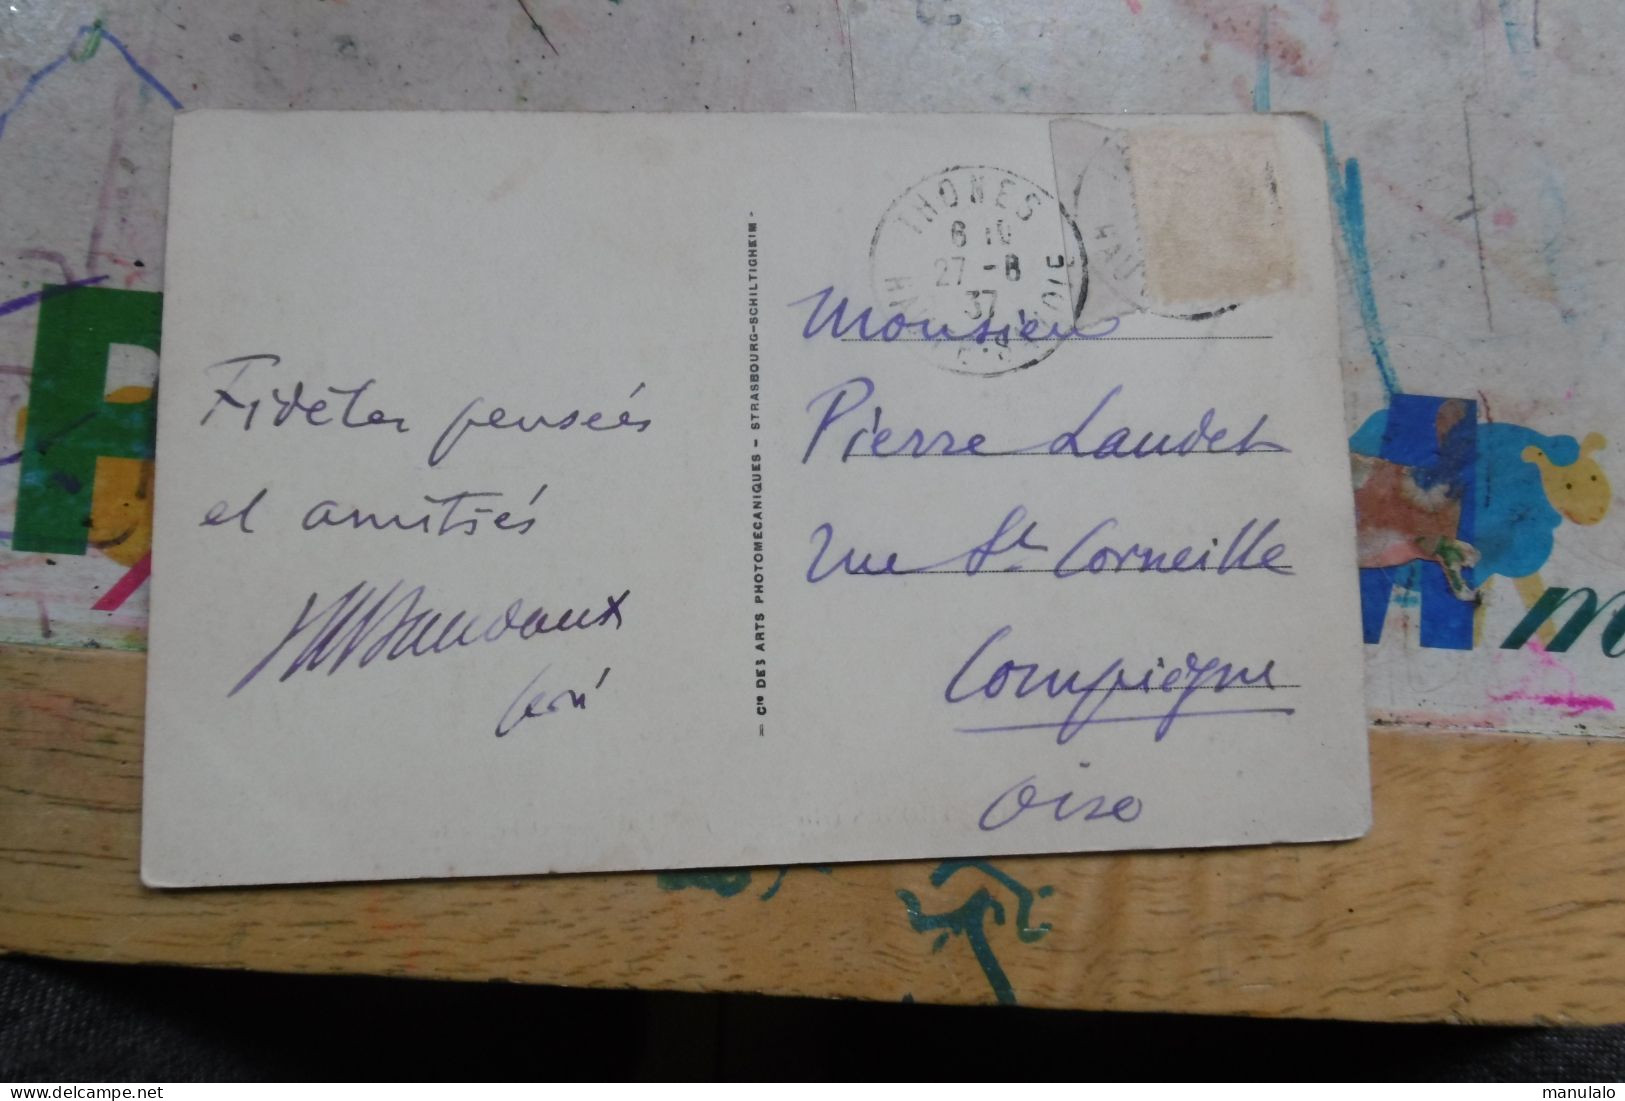 Fidèles pensées
et amitiés
THONES
6 10
27 -8
37
HAUTE-SAVOIE
HAU
— Cie DES ARTS PHOTOMÉCANIQUES — STRASBOURG-SCHILTIGHEIM -
Monsieur
Pierre Laudet
rue St Corneille
Compiègne
Oise
m
manulalo